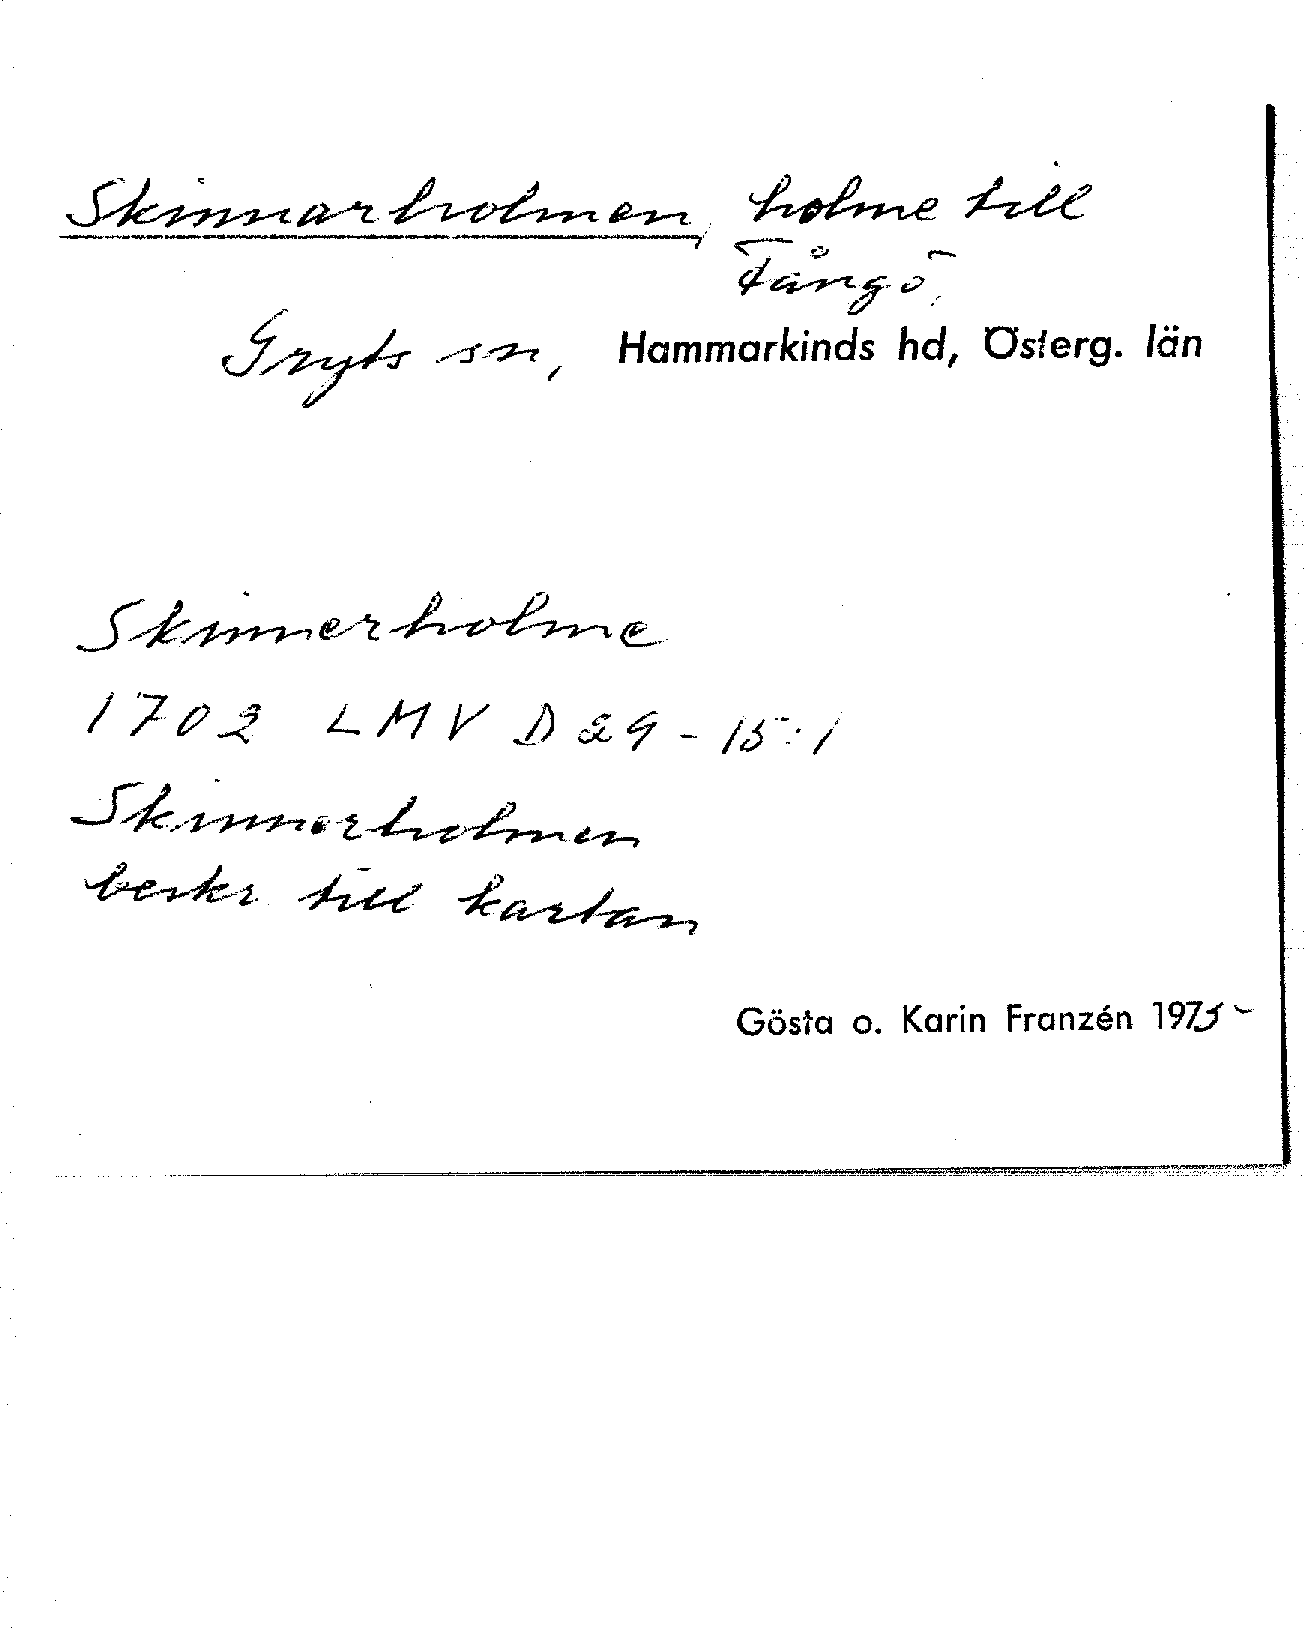 Skinnarholmen, holme till
Fångö,
Gryts sn, Hammarkinds hd, Österg. län
Skinnerholme
1702 LMV D29-15:1
Skinnerholmen
beskr till kartan
Gösta o. Karin Franzén 1975